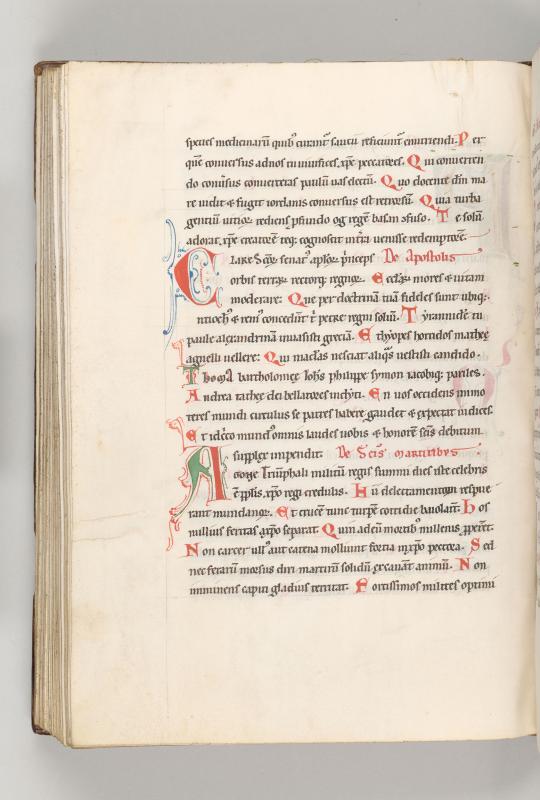 medicinarū quib; curant᷑ saucii enutriendi. Per
quē conuersus ad nos tu xpe peccatores. Qui conuerten
do conuersus conuerteras paulū uas electū. Quo docente dm̄ ma
re uidit & fugit iordanis conuersus est retrorsū. Quia turba
gentiū uitiose rediens pfundo og regē Te solū
adorat xpe creatorē teq; cognoscit uenisse redemptorē.
Clare Scōꝝ senat᷒ aplōꝝ p̄nceps De Apostolis
orbis terraꝝ rectorq; regnoꝝ. Ecclaꝝ mores & uitam
moderare. Que per doctrinā tuā fideles sunt ubiq;.
Antioch᷒ & rem᷒ concedūt t̄ petre regni soliū. Tyrannidē tu
paule alexandrinā inuasisti greciā. Ethyopes horridos mathee
agnelli uellere. Qui maclas nesciat aliq̄s uestisti candido.
Thoma bartholomee Iohs philippe symon iacobiq; pariles.
Andrea tathee dei bellatores inclyti. En uos occidens immo
teres mundi circulus se patres habere gaudet & expectat iudices.
Et idcco mund᷒ omnis laudes uobis & honorē scīs debitum
supplex impendit. De Scīs martiribus
Agone Triumphali militū regis summi dies iste celebris
ē pplis xpo regi credulis. Hii delectamentum respue
rant mundanoꝝ. Et crucē tunc turpē cottidie baiolant̄. Hos
nullius feritas a xpo separat. Quin ad eū mortib᷒ millenis pperēt.
Non carcer ull᷒ aut catena molliunt fortia in xpo pectora. Sed
nec ferarū morsus diri martirū solidū excauāt animū. Non
imminens capiti gladius territat. Fortissimos milites optimi